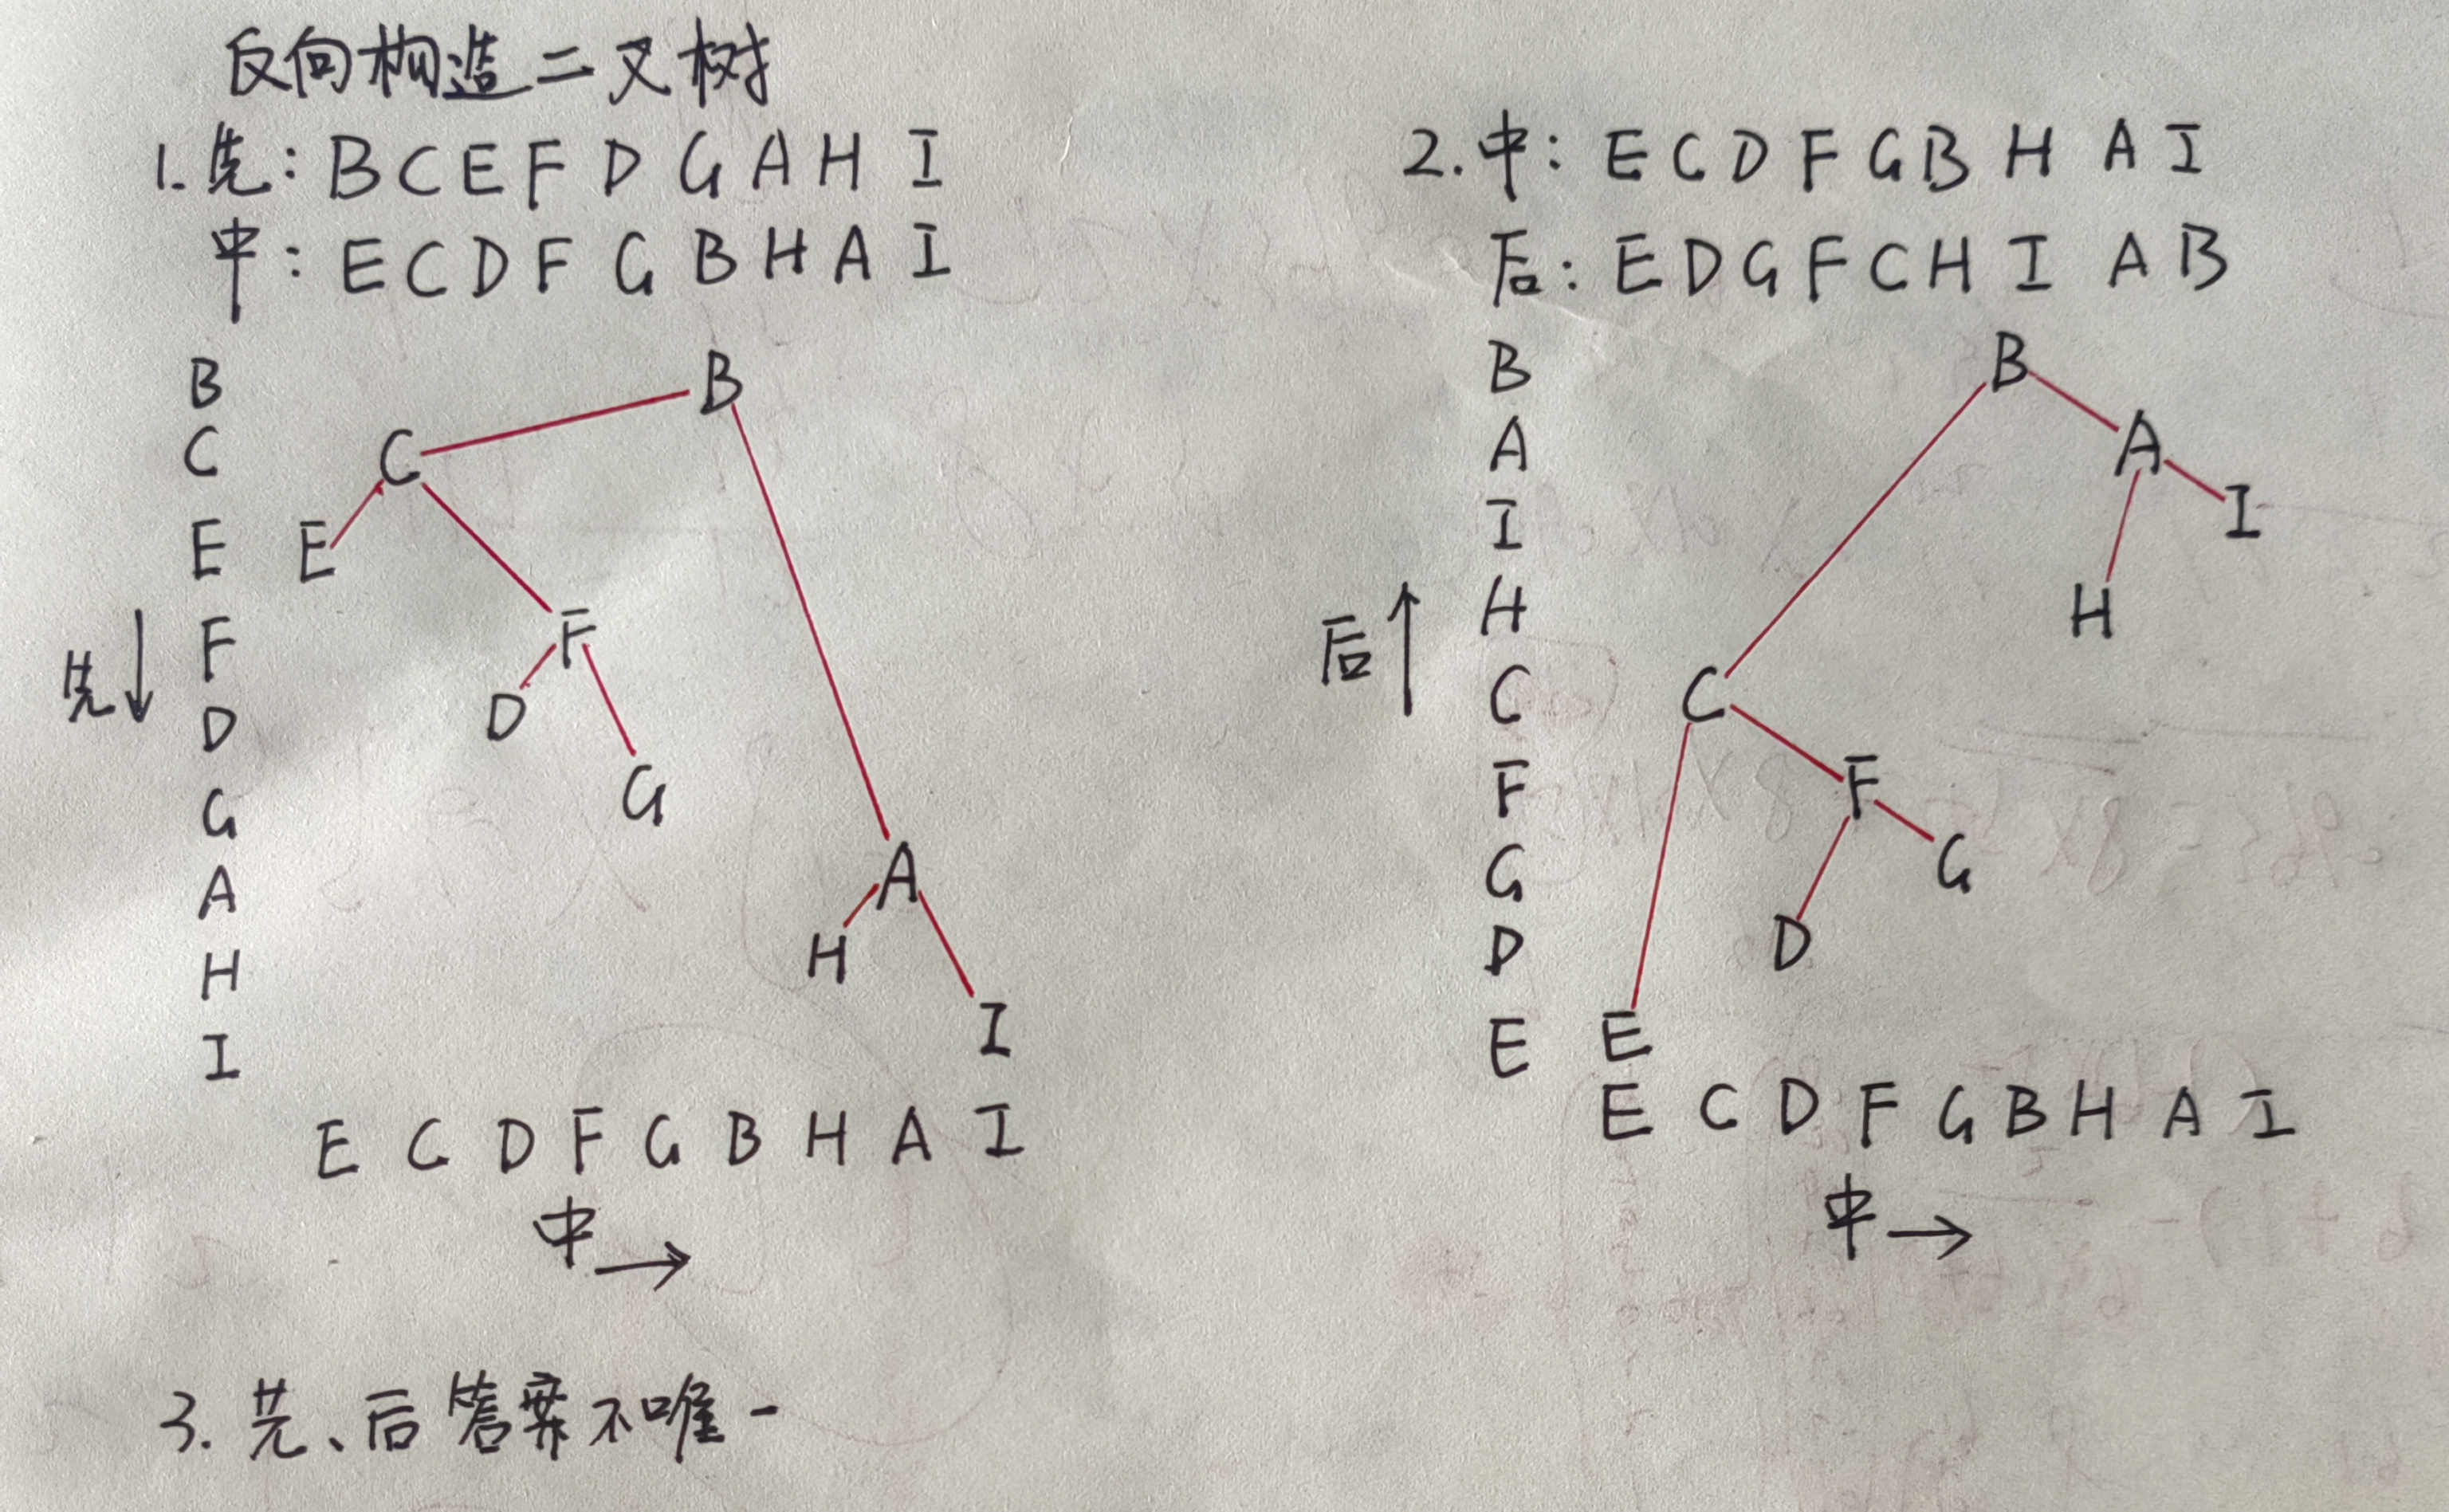 反向构造二叉树
1.先: B C E F D G A H I
中: E C D F G B H A I
B
C
E
F
D
G
A
H
I
先↓
B
C
E
F
D
G
A
H
I
E C D F G B H A I
中→
2.中: E C D F G B H A I
后: E D G F C H I A B
B
A
I
H
C
F
G
D
E
后↑
B
A
I
H
C
F
G
D
E
E C D F G B H A I
中→
3.先、后答案不唯一